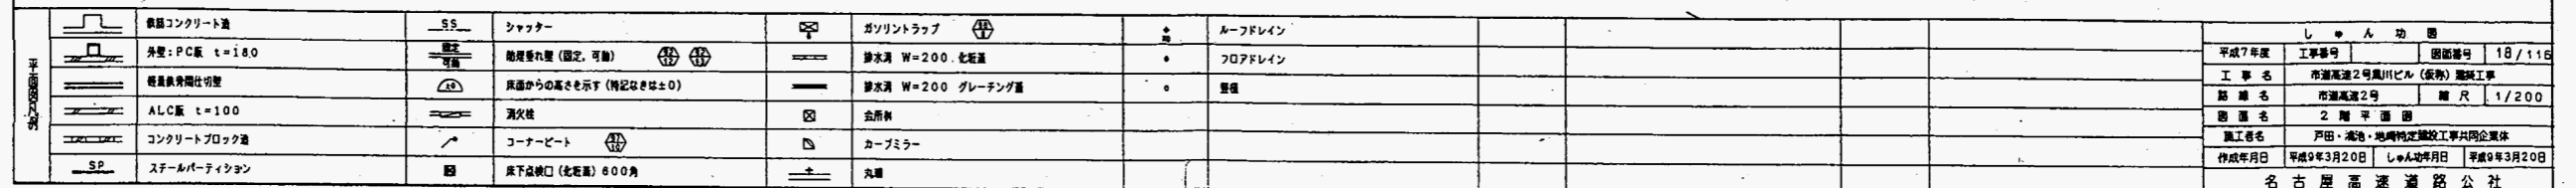 平面図記号
鉄筋コンクリート造
外壁:PC版 t=180
軽量鉄骨間仕切壁
ALC版 t=100
コンクリートブロック造
SP スチールパーティション
SS シャッター
固定 可動 防煙垂れ壁(固定,可動)
±0 床面からの高さを示す(特記なきは±0)
消火栓
コーナービート
床下点検口(化粧蓋)600角
ガソリントラップ
排水溝 W=200 化粧蓋
排水溝 W=200 グレーチング蓋
会所桝
カーブミラー
丸環
ルーフドレイン
フロアドレイン
竪樋
しゅん功図
平成7年度 工事番号 図面番号 18/116
工事名 市道高速2号黒川ビル(仮称)建築工事
路線名 市道高速2号 縮尺 1/200
図面名 2階平面図
施工者名 戸田・鴻池・地崎特定建設工事共同企業体
作成年月日 平成9年3月20日 しゅん功年月日 平成9年3月20日
名古屋高速道路公社